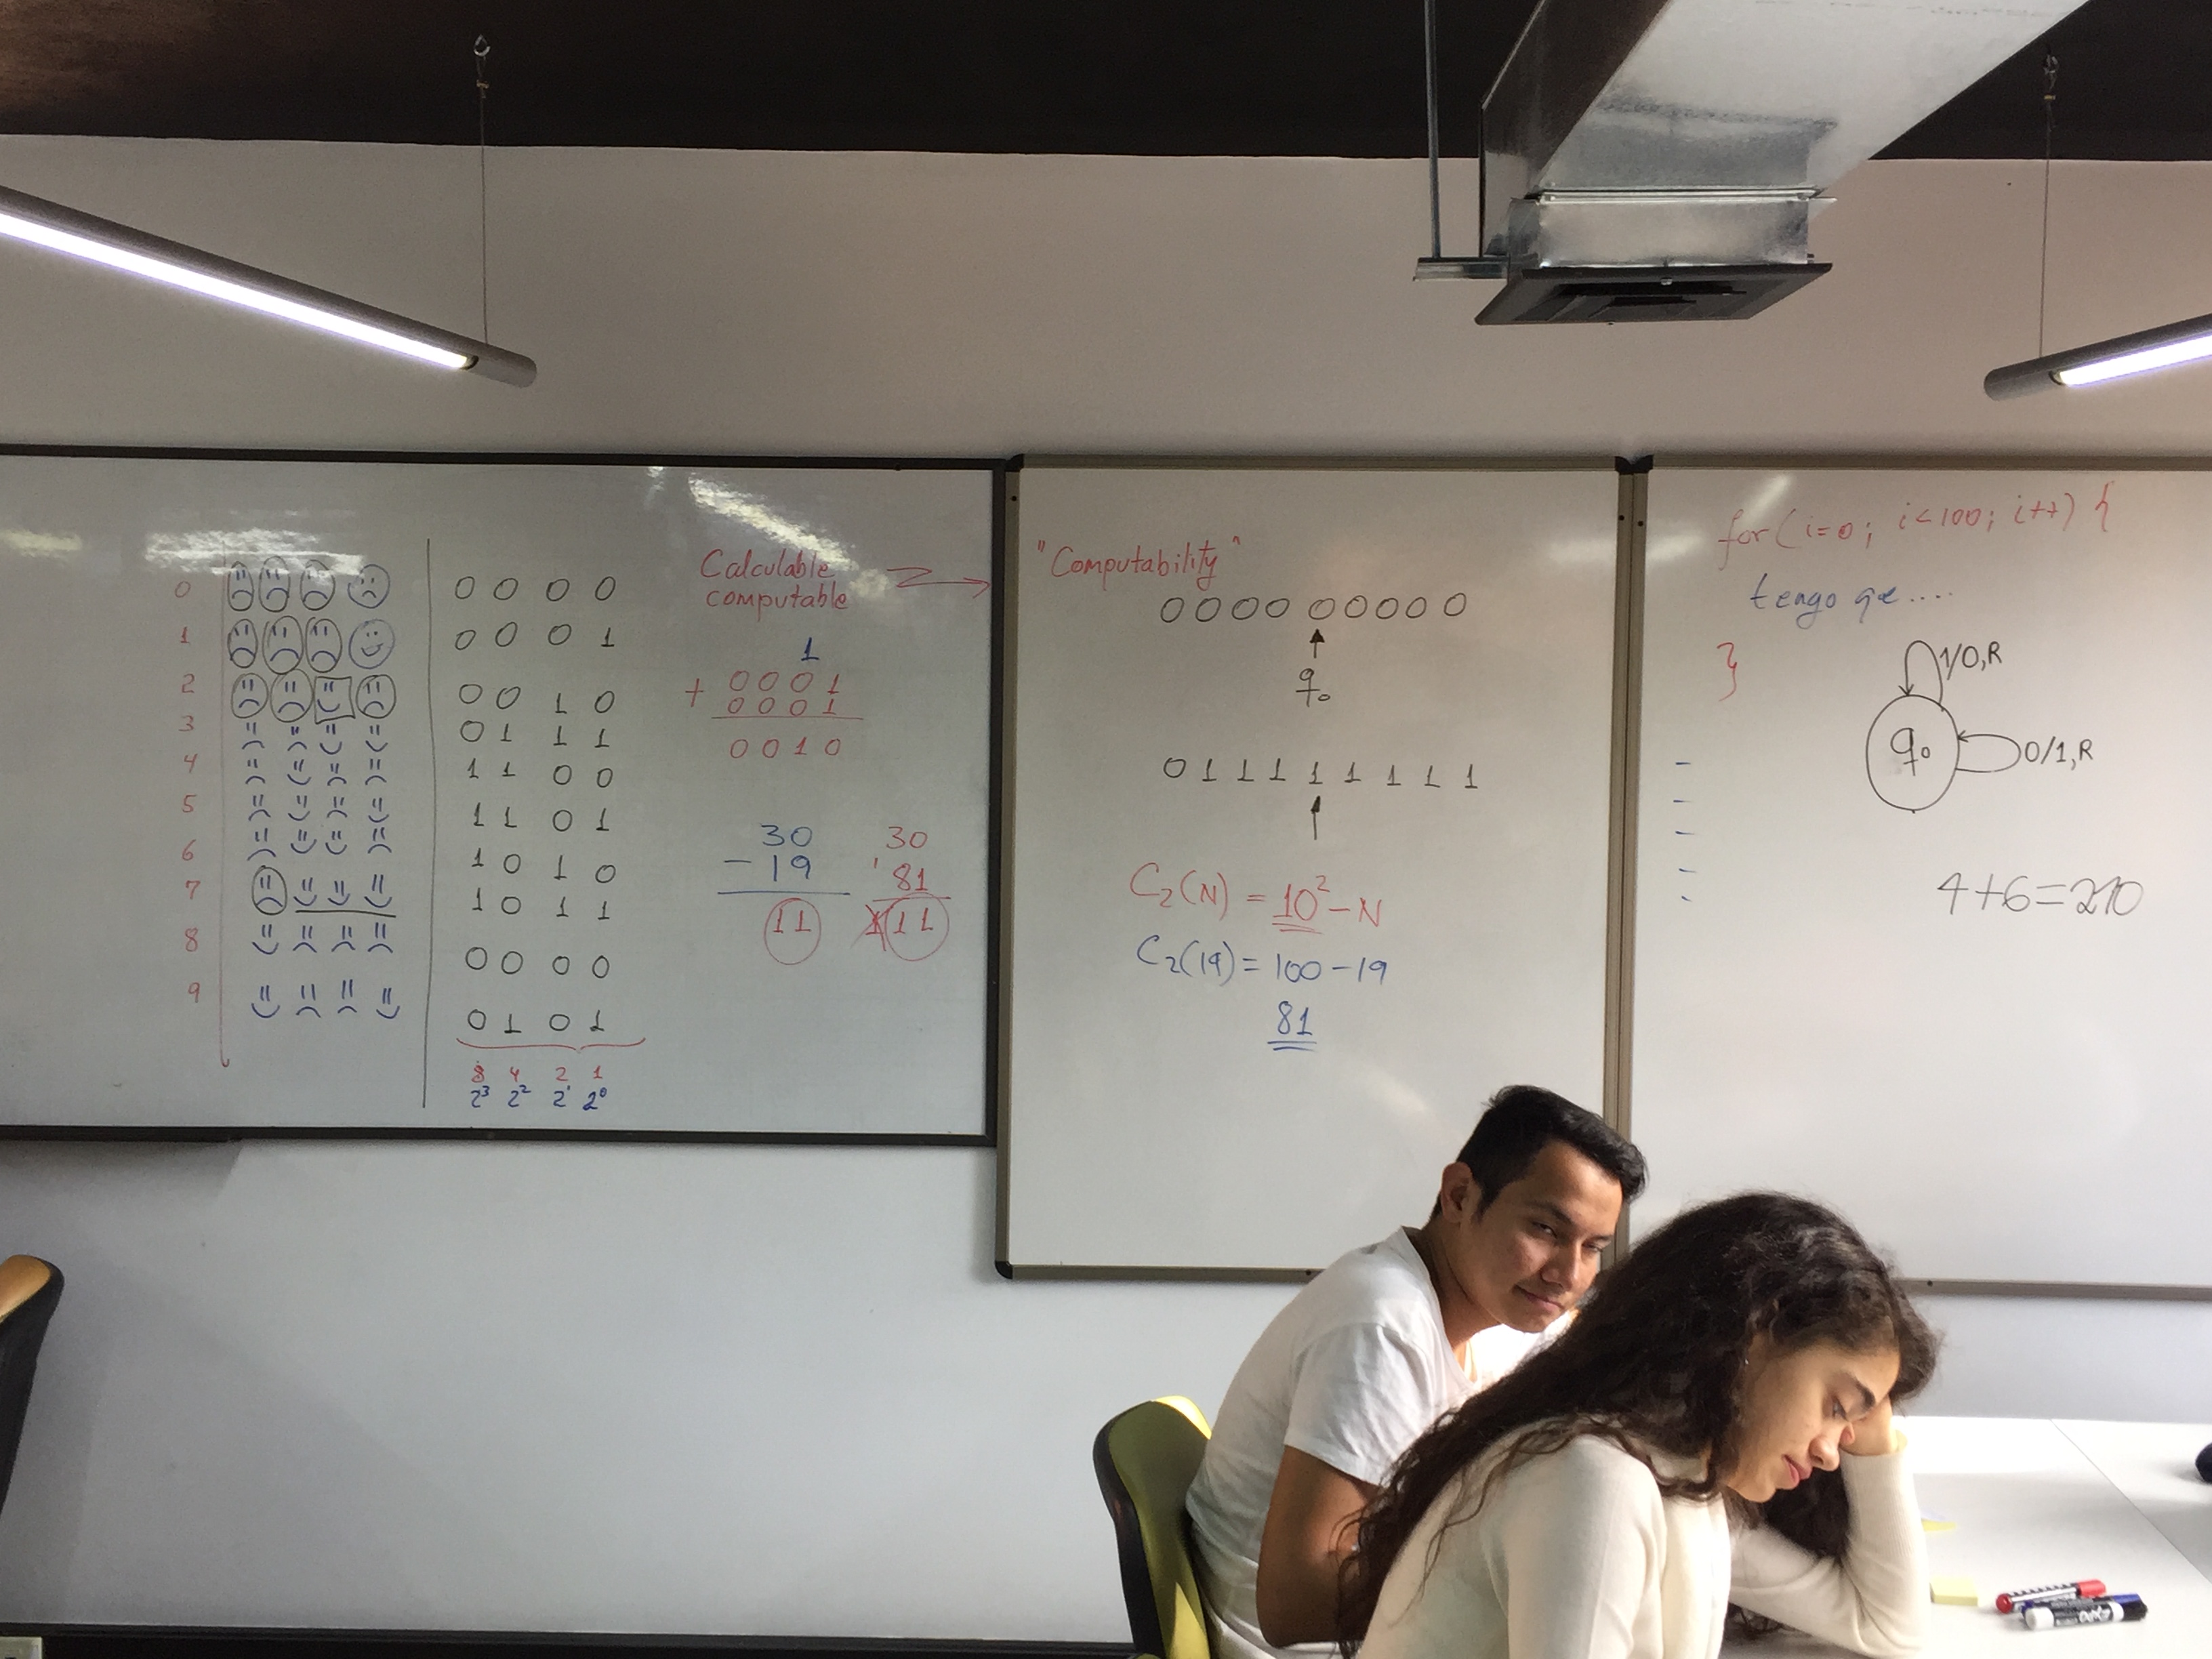 0 0 0 0 0
1 0 0 0 1
2 0 0 1 0
3 0 1 1 1
4 1 1 0 0
5 1 1 0 1
6 1 0 1 0
7 1 0 1 1
8 0 0 0 0
9 0 1 0 1
8 4 2 1
2³ 2² 2¹ 2⁰
Calculable
computable
1
+ 0001
0001
0010
30
- 19
11
30
'81
111
"Computability"
0000 00000
q₀
0 1 1 1 1 1 1 1 1
C₂(N) = 10² - N
C₂(19) = 100 - 19
81
for (i=0; i<100; i++) {
tengo que....
}
1/0,R
q₀
0/1,R
4+6=210
EXPO